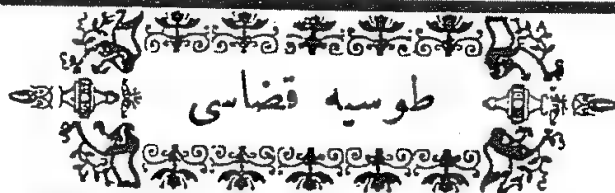 طوسيه قضاسى